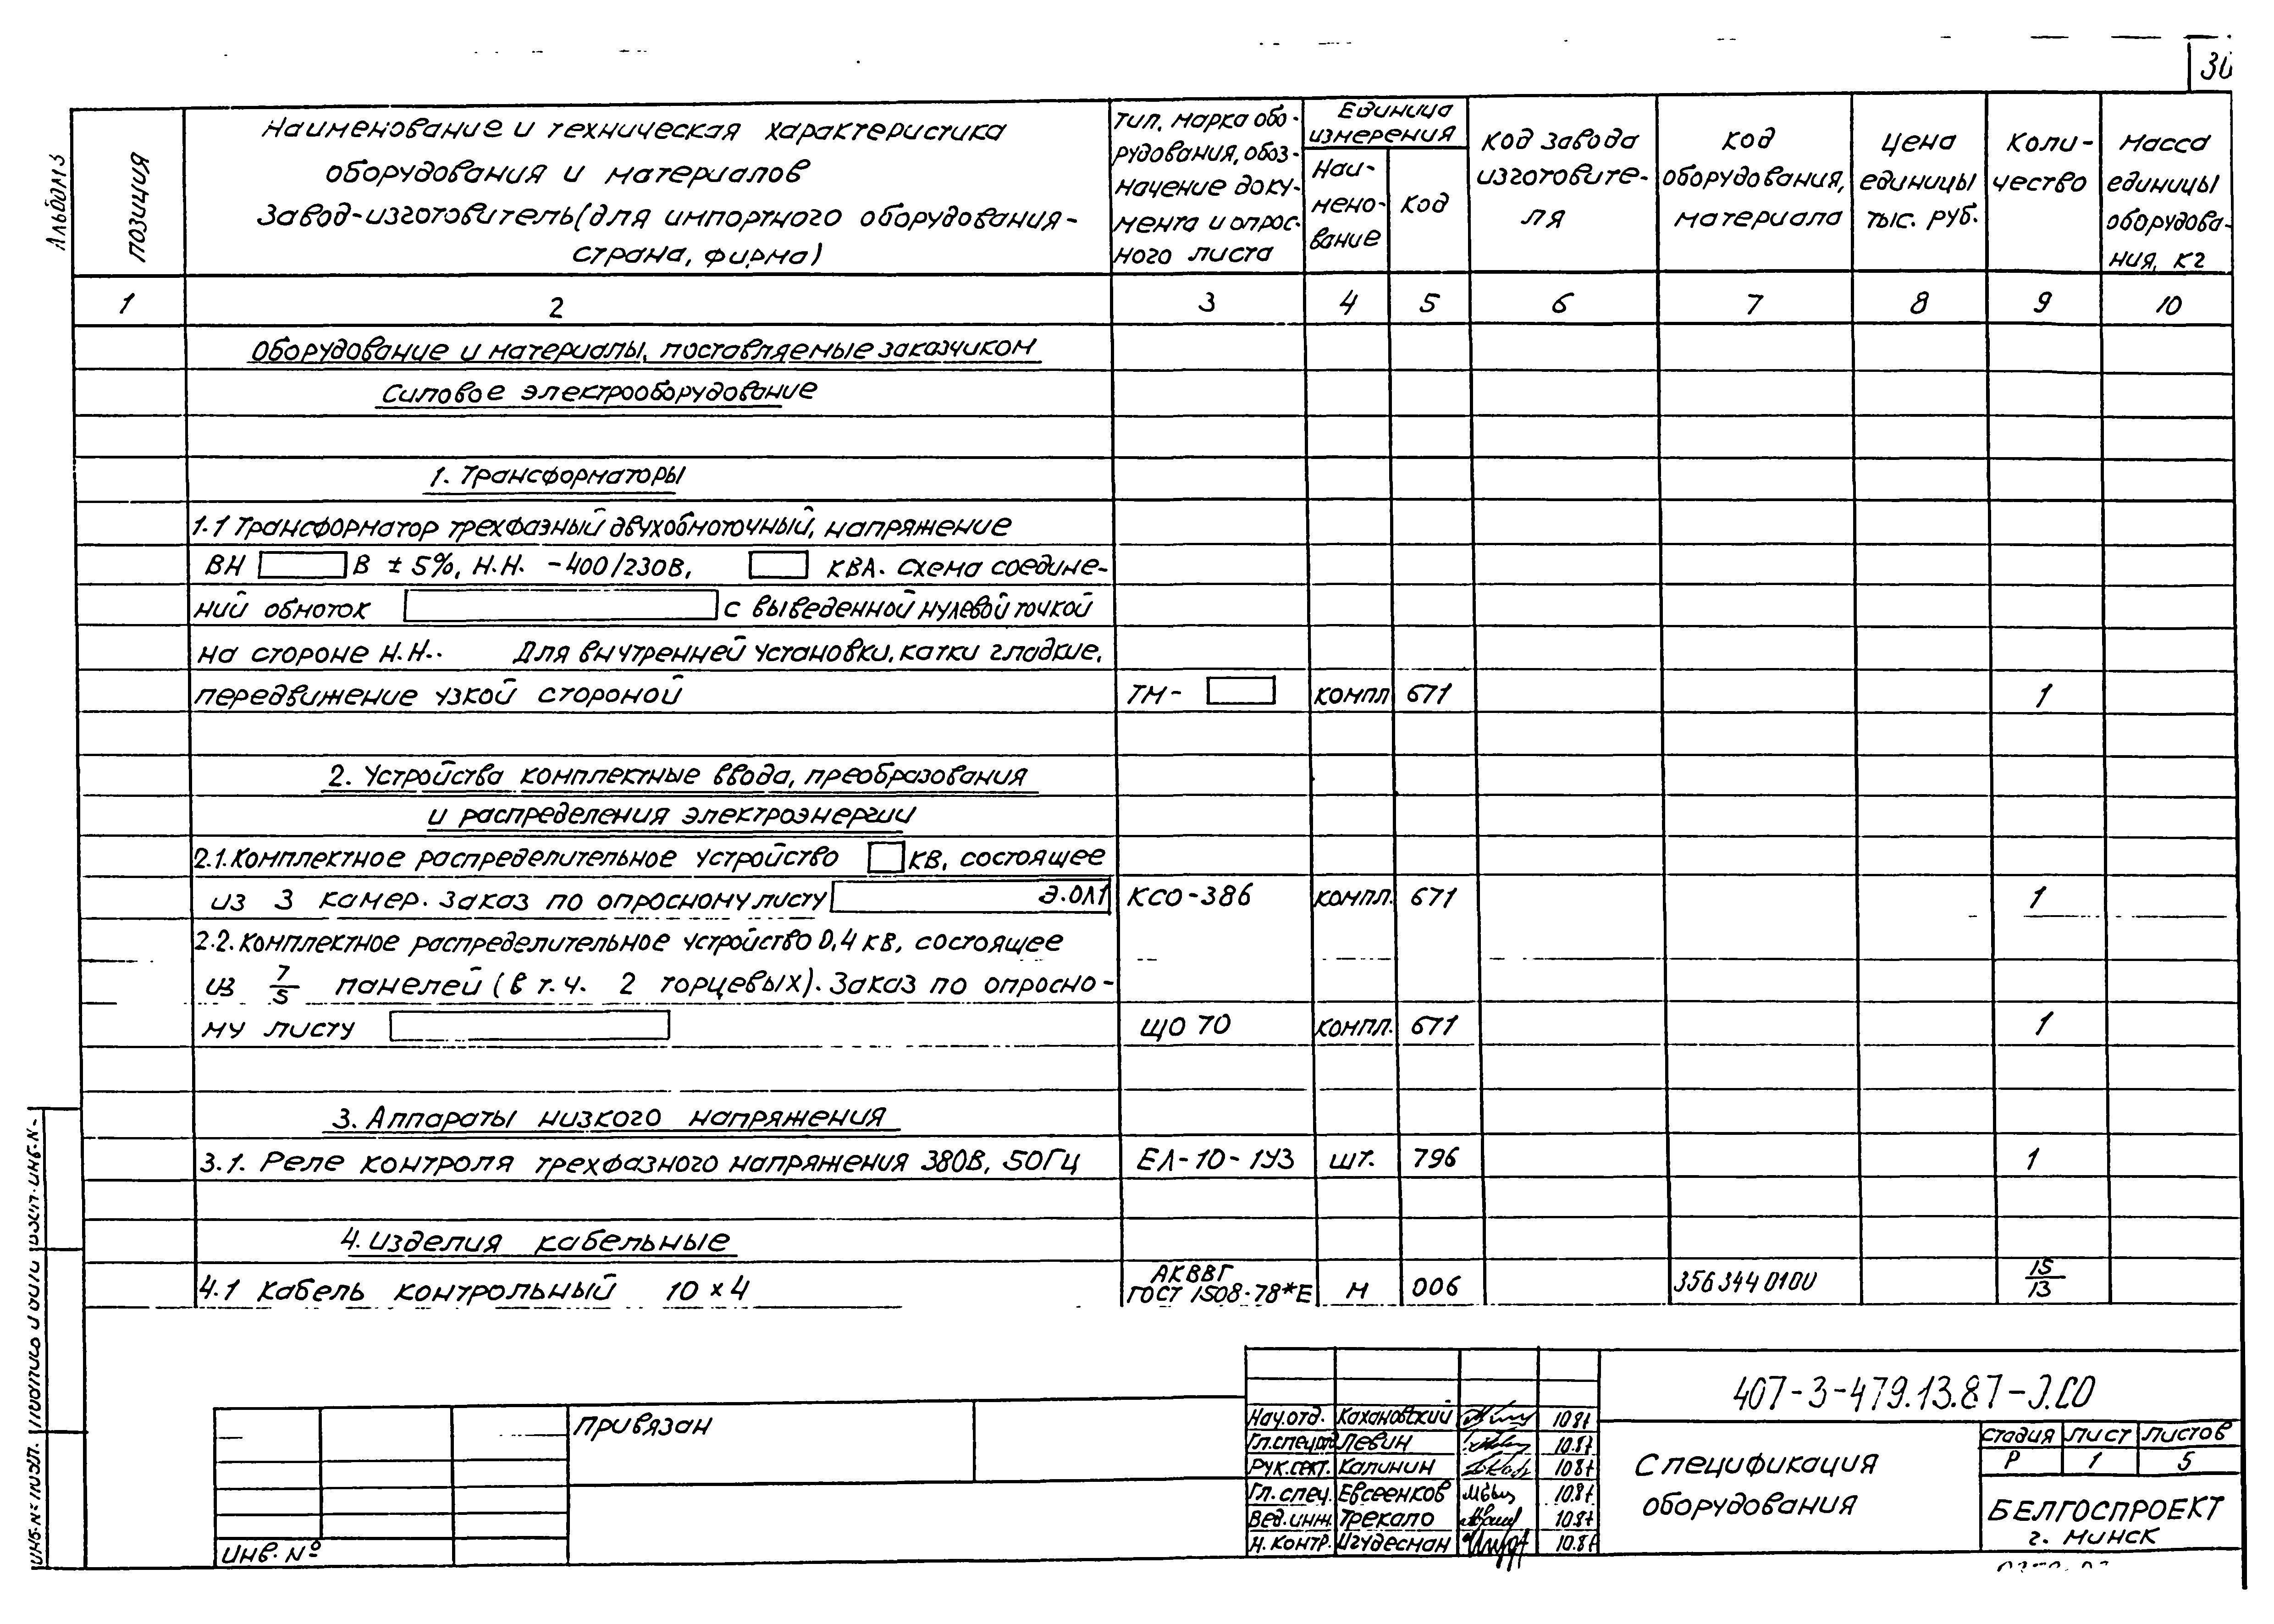 Альбом 3
позиция
Наименование и техническая характеристика
оборудования и материалов
Завод-изготовитель (для импортного оборудования-
страна, фирма)
Тип, марка обо-
рудования, обоз-
начение доку-
мента и опрос-
ного листа
Единица
измерения
Наи-
мено-
вание
Код
Код завода
изготовите-
ля
Код
оборудования,
материала
Цена
единицы
тыс. руб.
Коли-
чество
Масса
единицы
оборудова-
ния, кг
1 2 3 4 5 6 7 8 9 10
Оборудование и материалы, поставляемые заказчиком
Силовое электрооборудование
1. Трансформаторы
1.1 Трансформатор трехфазный двухобмоточный, напряжение
ВН В ± 5%, Н.Н. - 400/230В, КВА. Схема соедине-
ний обмоток с выведенной нулевой точкой
на стороне Н.Н.. Для внутренней установки, катки гладкие,
передвижение узкой стороной ТМ- компл 671 1
2. Устройства комплектные ввода, преобразования
и распределения электроэнергии
2.1. Комплектное распределительное устройство КВ, состоящее
из 3 камер. Заказ по опросному листу Э.ОЛ1 КСО-386 компл. 671 1
2.2. Комплектное распределительное устройство 0,4 кв, состоящее
из 7/5 панелей (в т.ч. 2 торцевых). Заказ по опросно-
му листу ЩО 70 компл. 671 1
3. Аппараты низкого напряжения
3.1. Реле контроля трехфазного напряжения 380В, 50Гц ЕЛ-10-1У3 шт. 796 1
4. Изделия кабельные
4.1 Кабель контрольный 10 х 4 АКВВГ ГОСТ 1508-78*Е м 006 3563440100 15/13
Привязан
Инв. №
Нач.отд. Кахановский 10.87
Гл.спец.отд Левин 10.87
Рук.сект. Калинин 10.87
Гл. спец. Евсеенков 10.87
Вед.инж. Трекало 10.87
Н. контр. Игудесман 10.87
407-3-479.13.87-Э.СО
Спецификация
оборудования
Стадия Лист Листов
Р 1 5
БЕЛГОСПРОЕКТ
г. Минск
Взам. инв. N-
Подпись и дата
Инв. № подл.